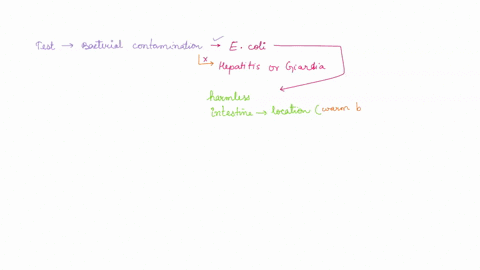 Test → Bacterial contamination → E. coli
x → Hepatitis or Giardia
harmless
intestine → location (warm b